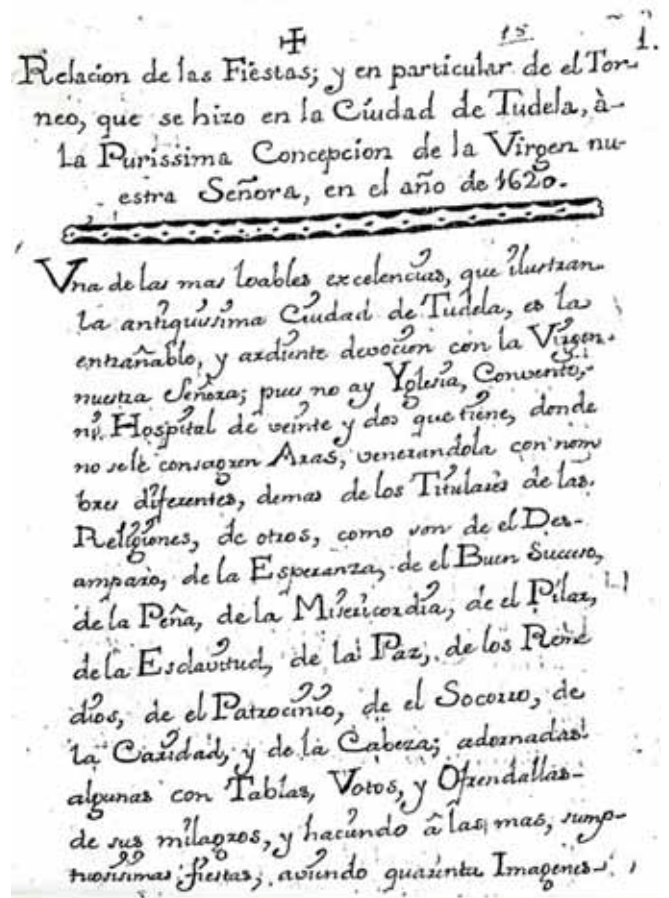 ✠
15. 1.
Relacion de las Fiestas; y en particular de el Tor-
neo, que se hizo en la Ciudad de Tudela, à-
La Purissima Concepcion de la Virgen nu-
estra Señora, en el año de 1620.
Vna de las mas loables excelencias, que ilustran
La antiquissima Ciudad de Tudela, es la
entrañable, y ardiente devocion con la Virgen
nuestra Señora; pues no ay Yglesia, Convento,
ni Hospital de veinte y dos que tiene, donde
no sele consagren Aras, venerandola con nom
bres diferentes, demas de los Titulares de las
Religiones, de otros, como son de el Des-
amparo, de la Esperanza, de el Buen Suceso,
de la Peña, de la Misericordia, de el Pilar,
de la Esclavitud, de la Paz, de los Reme
dios, de el Patrocinio, de el Socorro, de
la Caridad, y de la Cabeza; adornadas
algunas con Tablas, Votos, y Ofrendallas-
de sus milagros, y haciendo â las mas, sump-
tuosissimas fiestas; aviendo quarenta Imagenes-